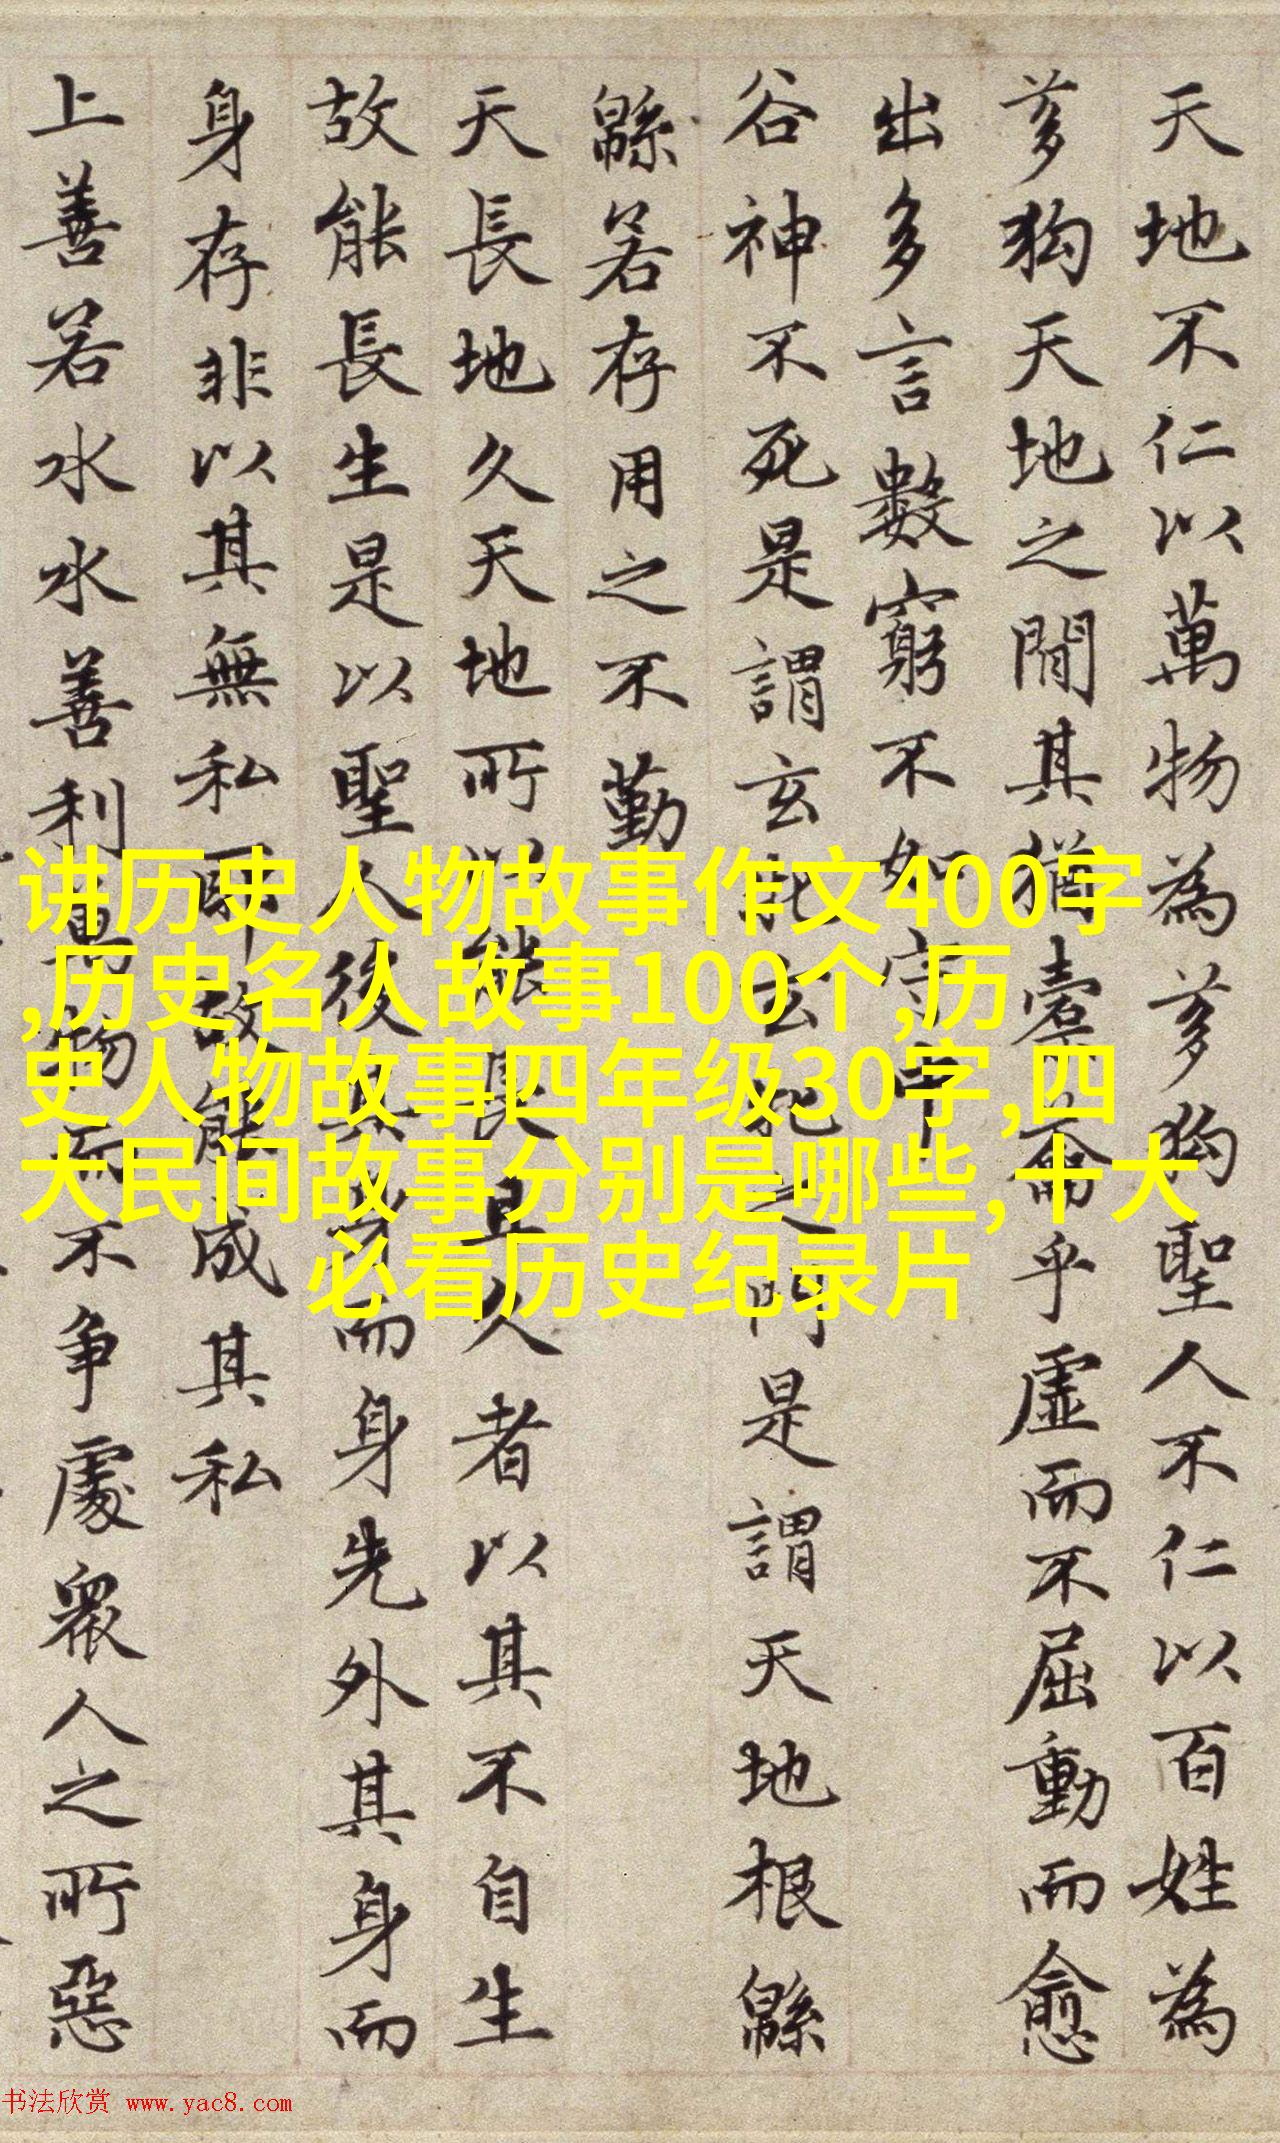 天地不仁以萬物為芻狗聖人不仁以百姓為
芻狗天地之間其猶橐籥乎虛而不屈動而愈
出多言數窮不如守中
谷神不死是謂玄牝玄牝之門是謂天地根緜
緜若存用之不勤
天長地久天地所以能長且久者以其不自生
故能長生是以聖人後其身而身先外其身而
身存非以其無私耶故能成其私
上善若水水善利萬物而不争處衆人之所惡
讲历史人物故事作文400字
,历史名人故事100个,历
史人物故事四年级30字,四
大民间故事分别是哪些,十大
必看历史纪录片
书法欣赏 www.yac8.com